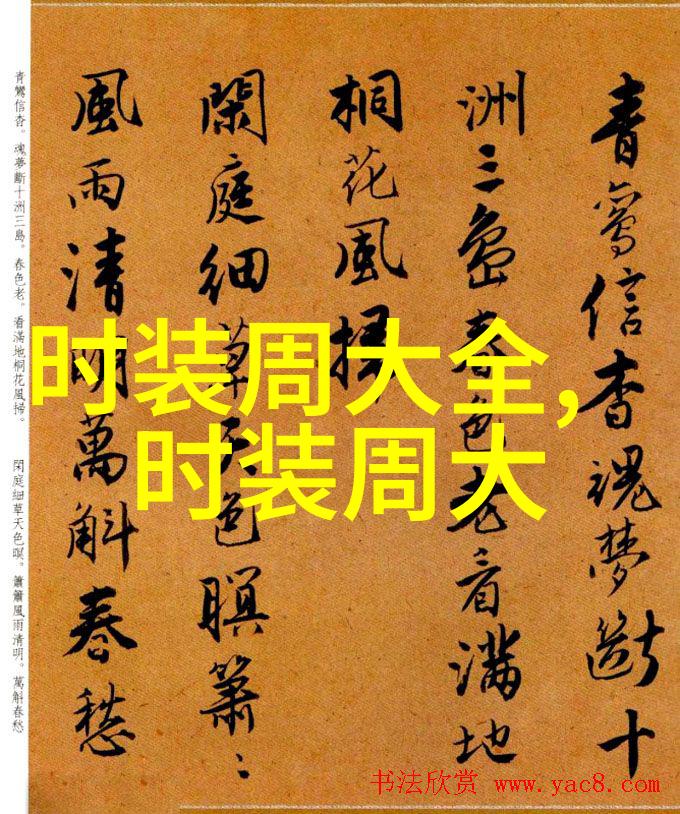 青鸞信杳魂夢斷十
洲三島春色老看滿地
桐花風掃
閑庭細草天色瞑簫〻
風雨清明萬斛春愁
青鸞信杳。魂夢斷十洲三島。春色老。看滿地桐花風掃。 閑庭細草天色暝。簫簫風雨清明。萬斛春愁
时装周大全,
时装周大
书法欣赏 www.yac8.com